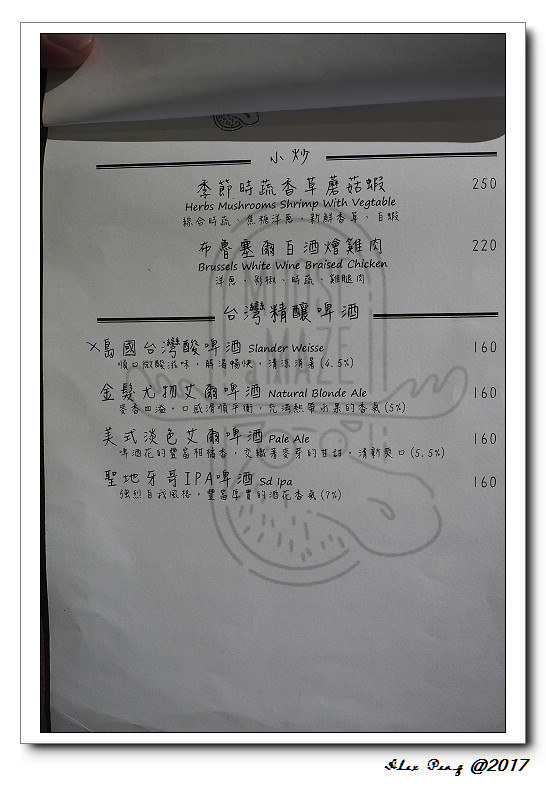 小炒
季節時蔬香草蘑菇蝦 250
Herbs Mushrooms Shrimp With Vegtable
綜合時蔬、焦糖洋蔥、新鮮香草、白蝦
布魯塞爾白酒燴雞肉 220
Brussels White Wine Braised Chicken
洋蔥、彩椒、時蔬、雞腿肉
台灣精釀啤酒
x島國台灣酸啤酒 Slander Weisse 160
順口微酸滋味，解渴暢快，清涼消暑(4.5%)
金髮尤物艾爾啤酒 Natural Blonde Ale 160
麥香四溢，口感滑順平衡，充滿熱帶水果的香氣(5%)
美式淡色艾爾啤酒 Pale Ale 160
啤酒花的豐富柑橘香，交織著麥芽的甘甜，清新爽口(5.5%)
聖地牙哥IPA啤酒 Sd Ipa 160
強烈自我風格，豐富厚實的酒花香氣(7%)
MAZE
Alex Peng @2017